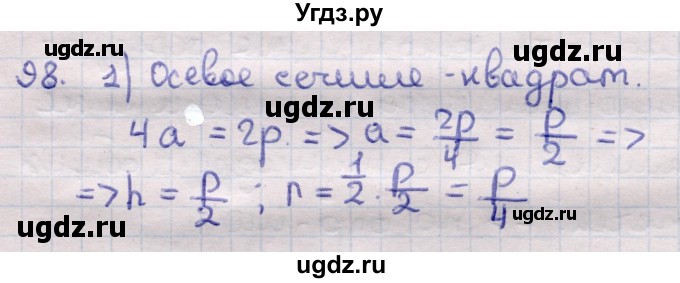 Угдз.ру
ugdz.ru ugdz.ru
98. 1) Осевое сечение - квадрат.
ugdz.ru
4a = 2p. => a = 2p/4 = p/2 =>
ugdz.ru ugdz.ru
=> h = p/2 ; r = 1/2 · p/2 = p/4
ugdz.ru
ugdz.ru